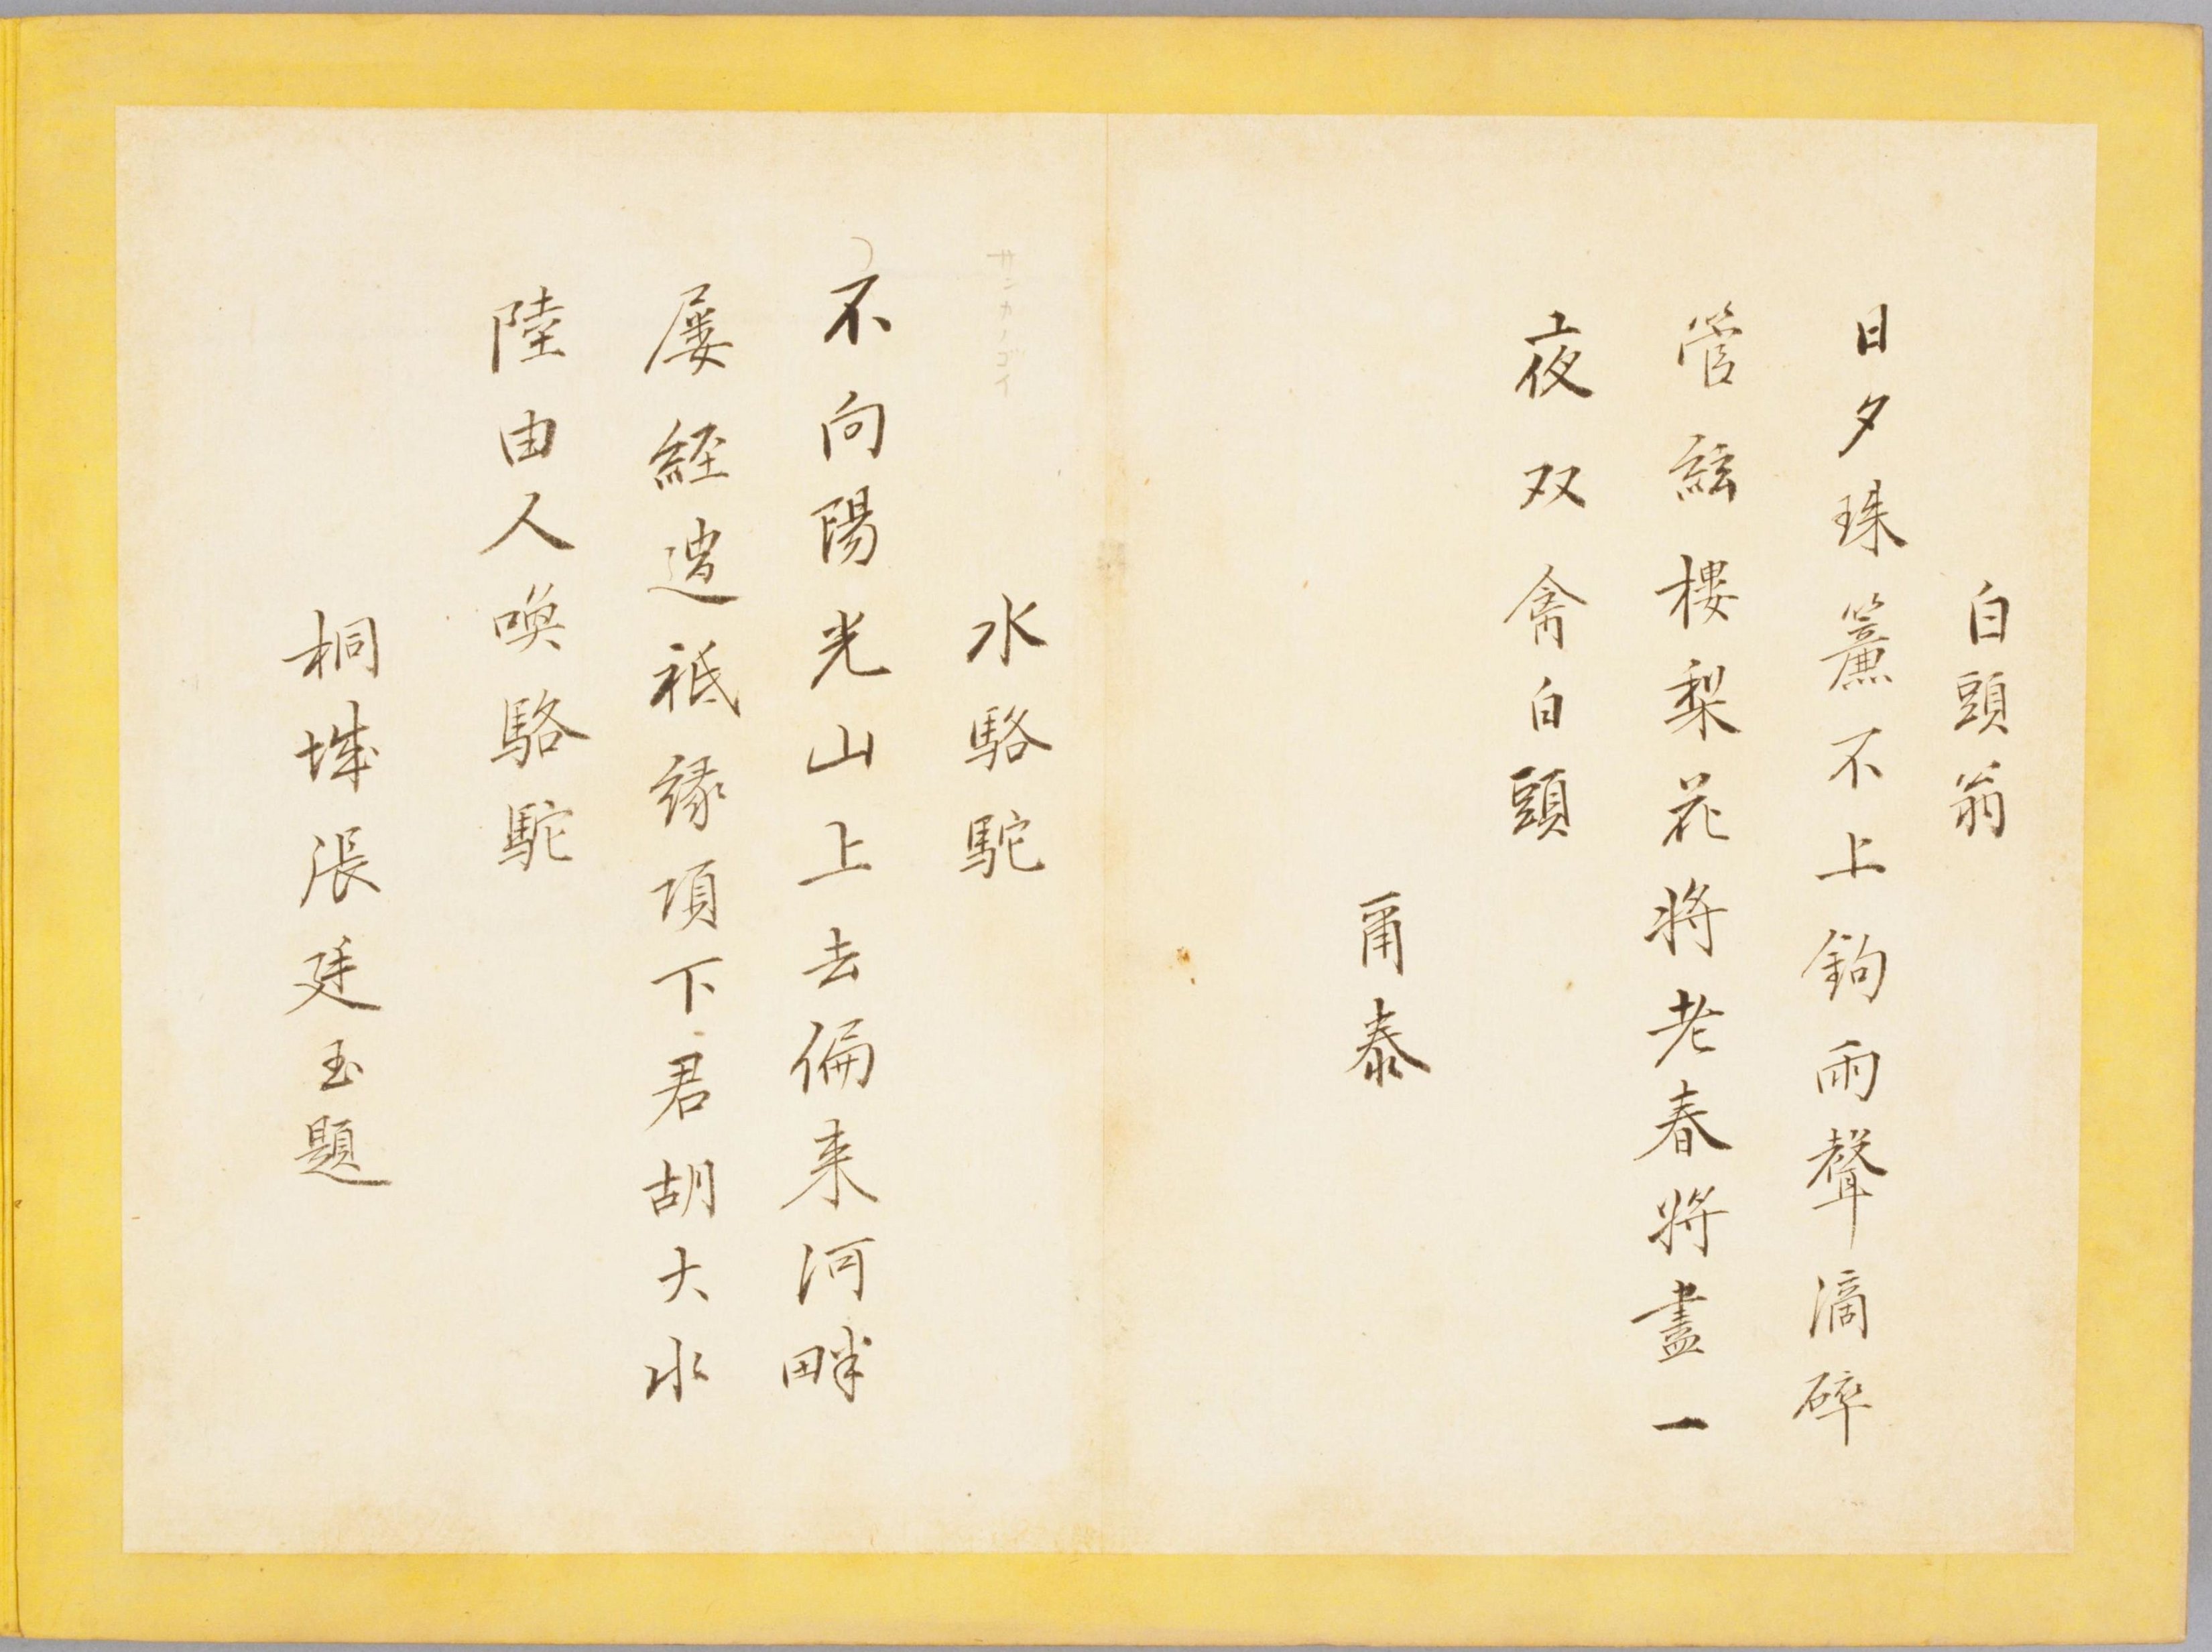 白頭翁
日夕珠簾不上鉤雨聲滴碎
管絃樓梨花將老春將盡一
夜双禽白頭
爾泰
水駱駝
サンカノゴイ
不向陽光山上去偏来河畔
屡經過祗縁項下君胡大水
陸由人喚駱駝
桐城張廷玉題